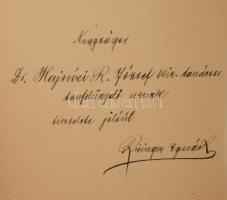 Nagyságos
Dr. Hajnóci R. József kir. tanácsos
tanfelügyelő urnak
tisztelete jeléül
Ignácz